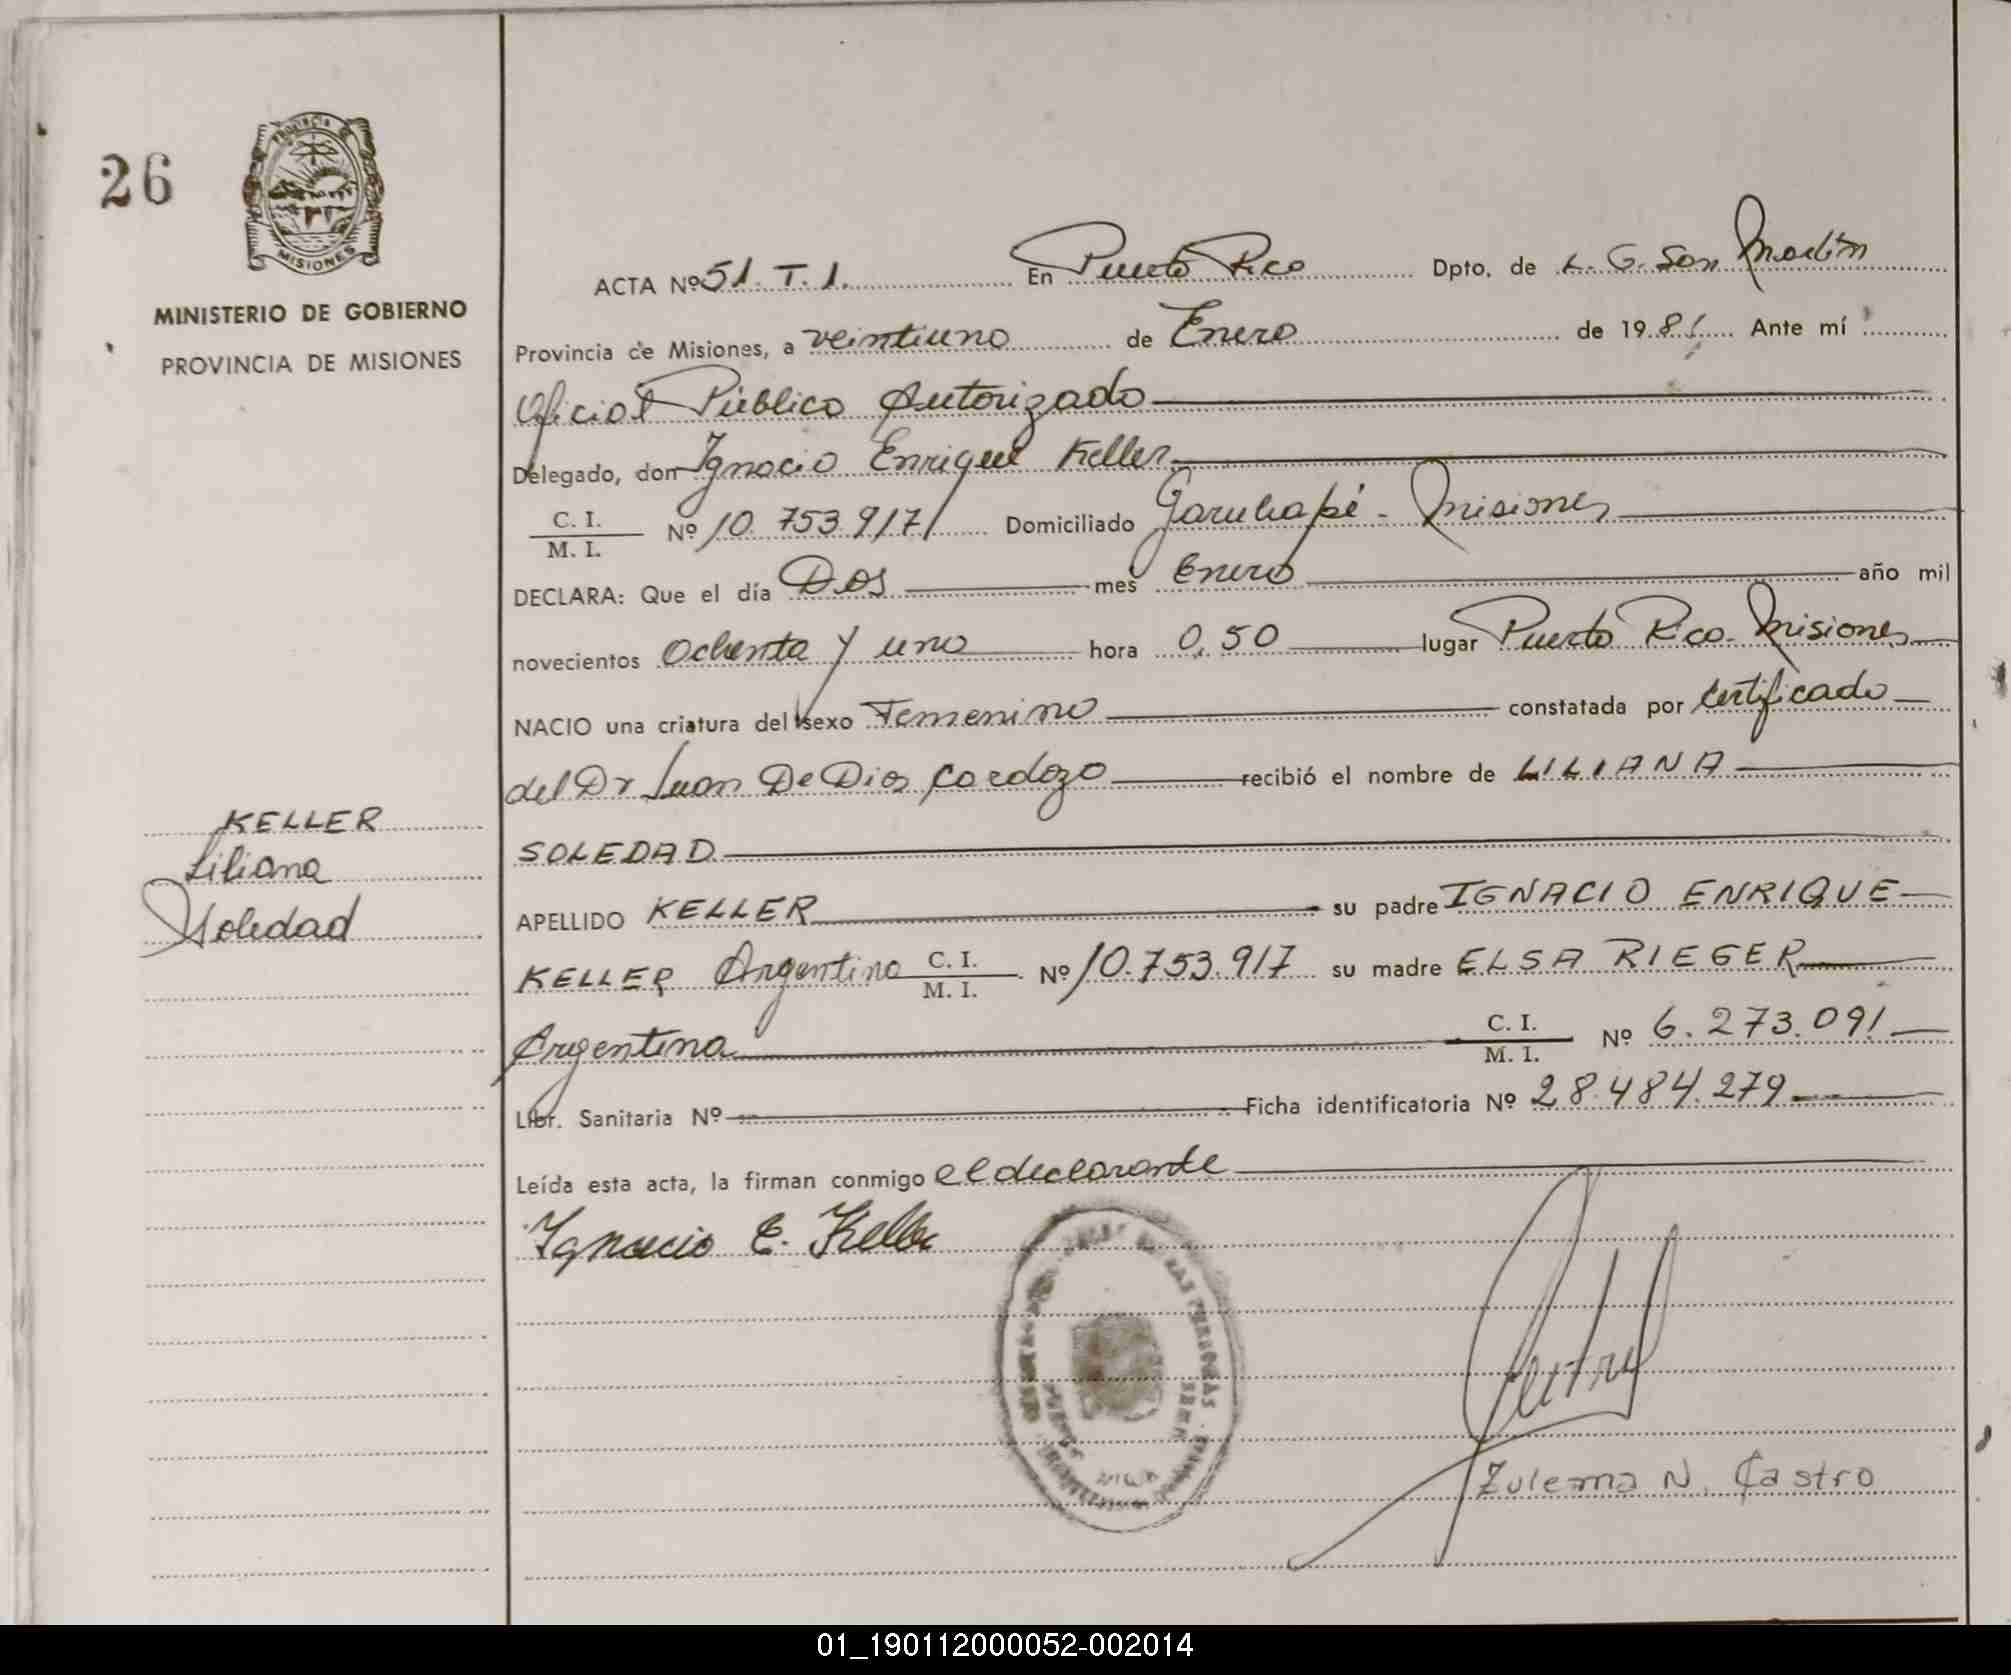 26
PROVINCIA DE
MISIONES
MINISTERIO DE GOBIERNO
PROVINCIA DE MISIONES
KELLER
Liliana
Soledad
ACTA Nº 51. T. 1. En Puerto Rico Dpto. de L. G. San Martín
Provincia de Misiones, a veintiuno de Enero de 1981 Ante mí
Oficial Público Autorizado
Delegado, don Ignacio Enrique Keller
C. I.
M. I. Nº 10.753.917 Domiciliado Garuhapé - Misiones
DECLARA: Que el día Dos mes Enero año mil
novecientos ochenta y uno hora 0,50 lugar Puerto Rico - Misiones
NACIO una criatura del sexo Femenino constatada por certificado
del Dr Juan De Dios Cardozo recibió el nombre de LILIANA
SOLEDAD
APELLIDO KELLER su padre IGNACIO ENRIQUE
KELLER Argentino C. I.
M. I. Nº 10.753.917 su madre ELSA RIEGER
Argentina C. I.
M. I. Nº 6.273.091
Libr. Sanitaria Nº Ficha identificatoria Nº 28.484.279
Leída esta acta, la firman conmigo el declarante
Ignacio E. Keller
Zulema N. Castro
01_190112000052-002014